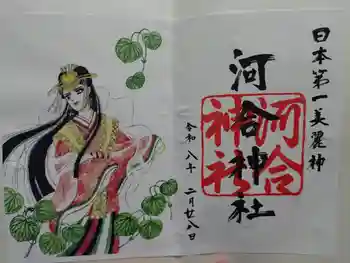 日本第一美麗神
河合神社
河合神社
令和八年
二月廿八日